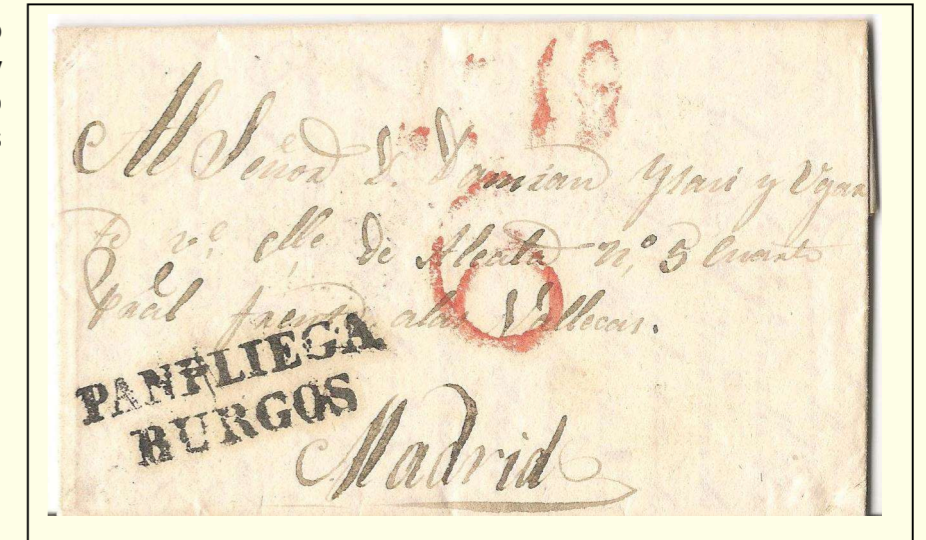 19
Al Señor D. Damian Ysari y Ugar
te vº. Clle de Alcala nº. 5 Cuarto
Pral frente a las Vallecas.
6
PANPLIEGA
BURGOS
Madrid